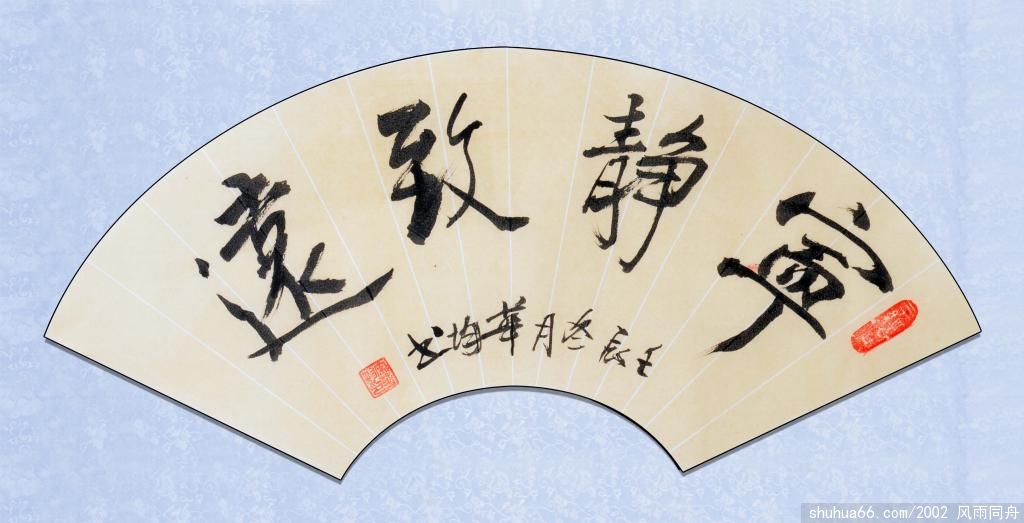 寧靜致遠
壬辰冬月華均书
shuhua66.com/2002 风雨同舟